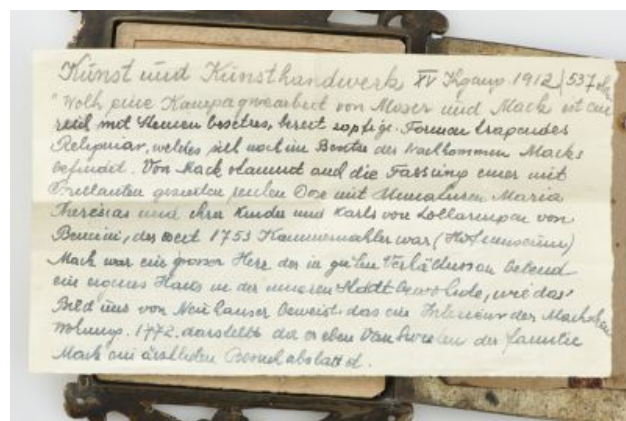 Kunst und Kunsthandwerk XV Jhgang 1912 / 537
"Wohl eine Kompagniearbeit von Moser und Mack ist ein
reich mit Steinen besetztes, bereits zopfige Formen tragendes
Reliquiar, welches sich noch im Besitze der Nachkommen Macks
befindet. Von Mack stammt auch die Fassung einer mit
Brillanten gezierten Dose mit Miniaturen Maria
Theresias und ihrer Kinder und Karls von Lothringen von
Bencini, der seit 1753 Kammermahler war (Hofmuseum)
Mack war ein grosser Herr der in guten Verhältnissen lebend
ein eigenes Haus in der inneren Stadt bewohnte, wie das
Bild uns von Neuhauser beweist das ein Interieur der Mackschen
Wohnung. 1772. darstellt da er eben Van Swieten der Familie
Mack ein ärztlichen Besuch abstattet.